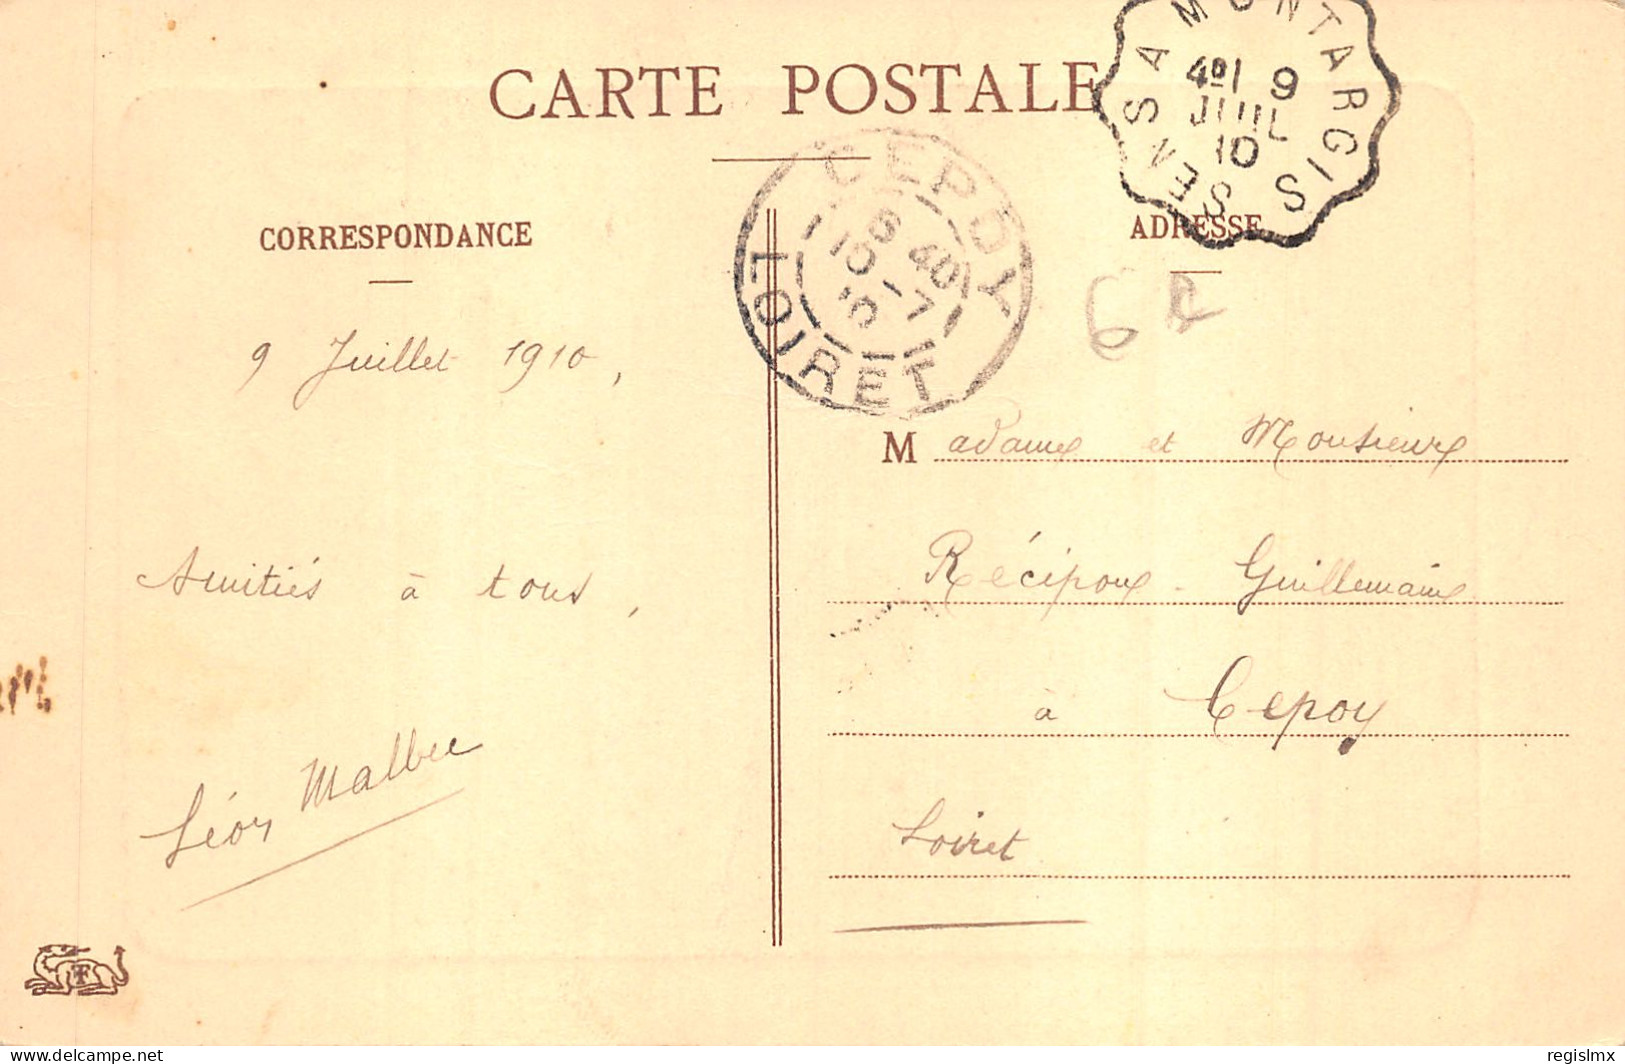 CARTE POSTALE
SENS A MONTARGIS
9
JUIL
10
CEPOY
6 40
10 - 7
10
LOIRET
CORRESPONDANCE
ADRESSE
9 Juillet 1910,
Madame et Monsieur
Récipon - Guillemain
Amitiés à tous,
à Cepoy
Léon Malbec
Loiret
delcampe.net
regislmx